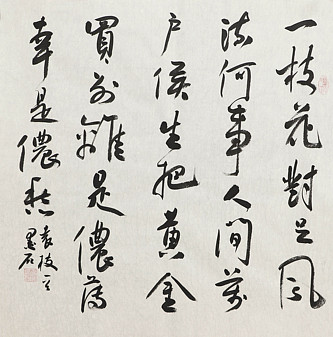 一枝花對足風
流何事人間萬
戶侯生把黃金
買別離是儂薄
幸是儂愁
袁枚
墨石